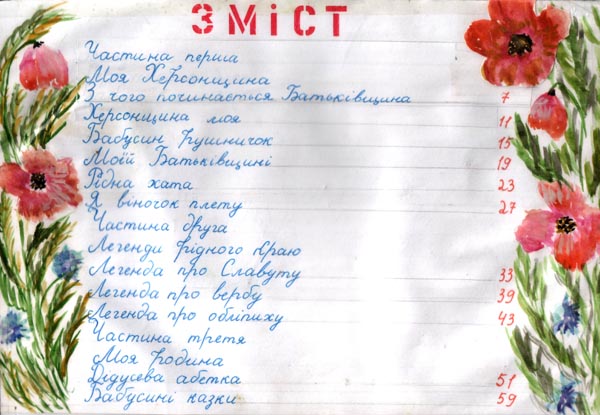 ЗМІСТ
Частина перша
Моя Херсонщина
З чого починається Батьківщина 7
Херсонщина моя 11
Бабусин рушничок 15
Моїй Батьківщині 19
Рідна хата 23
Я віночок плету 27
Частина друга
Легенди рідного краю
Легенда про Славуту 33
Легенда про вербу 39
Легенда про обліпиху 43
Частина третя
Моя родина
Дідусева абетка 51
Бабусині казки 59